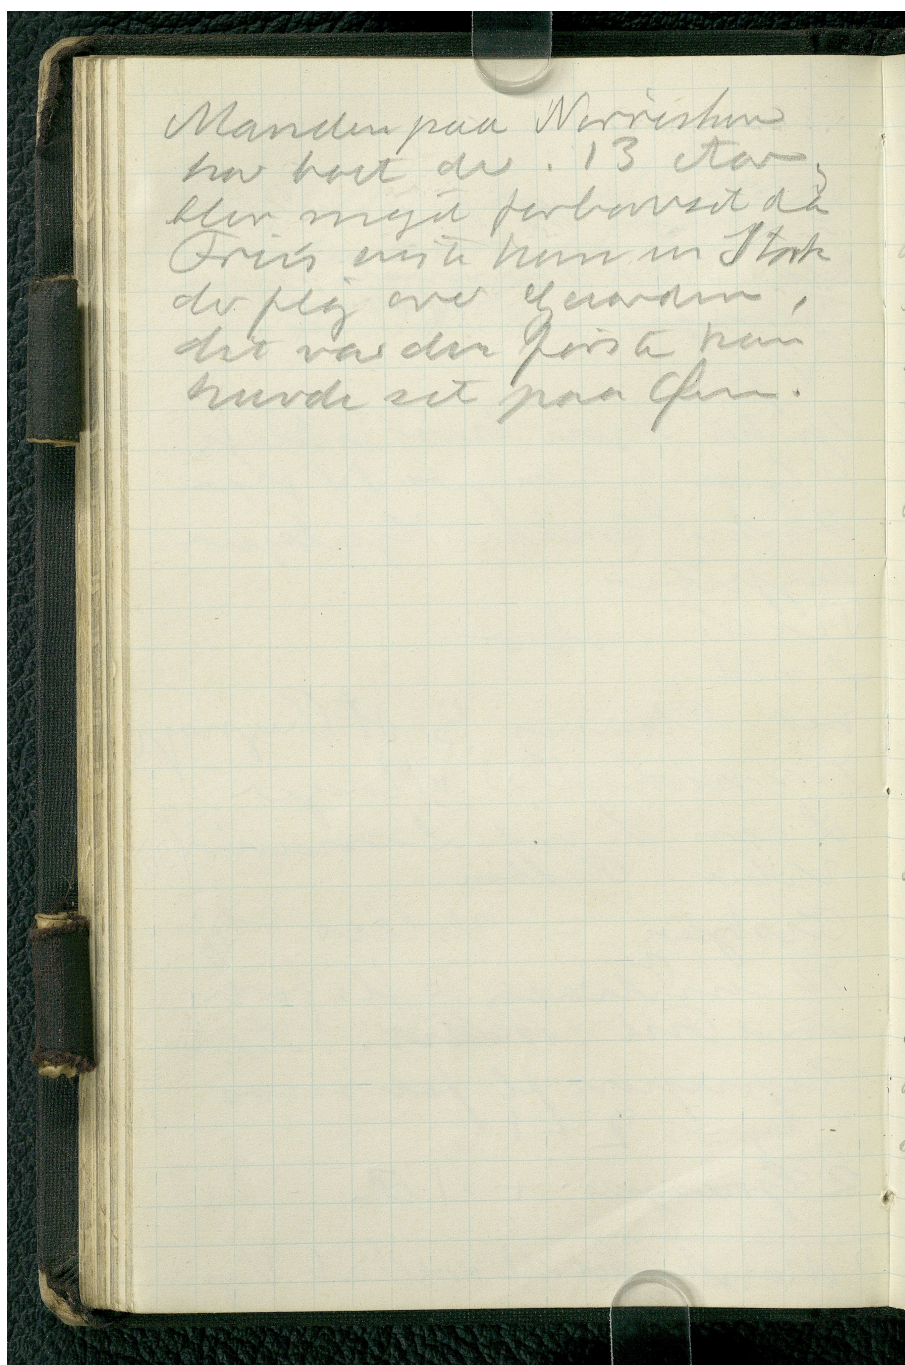 Manden paa Nørreshou
har boet der . 13 Aar,
blev meget forbavset da
Friis viste ham en Stork
der fløj over Gaarden,
det var den første han
havde set paa Øen.